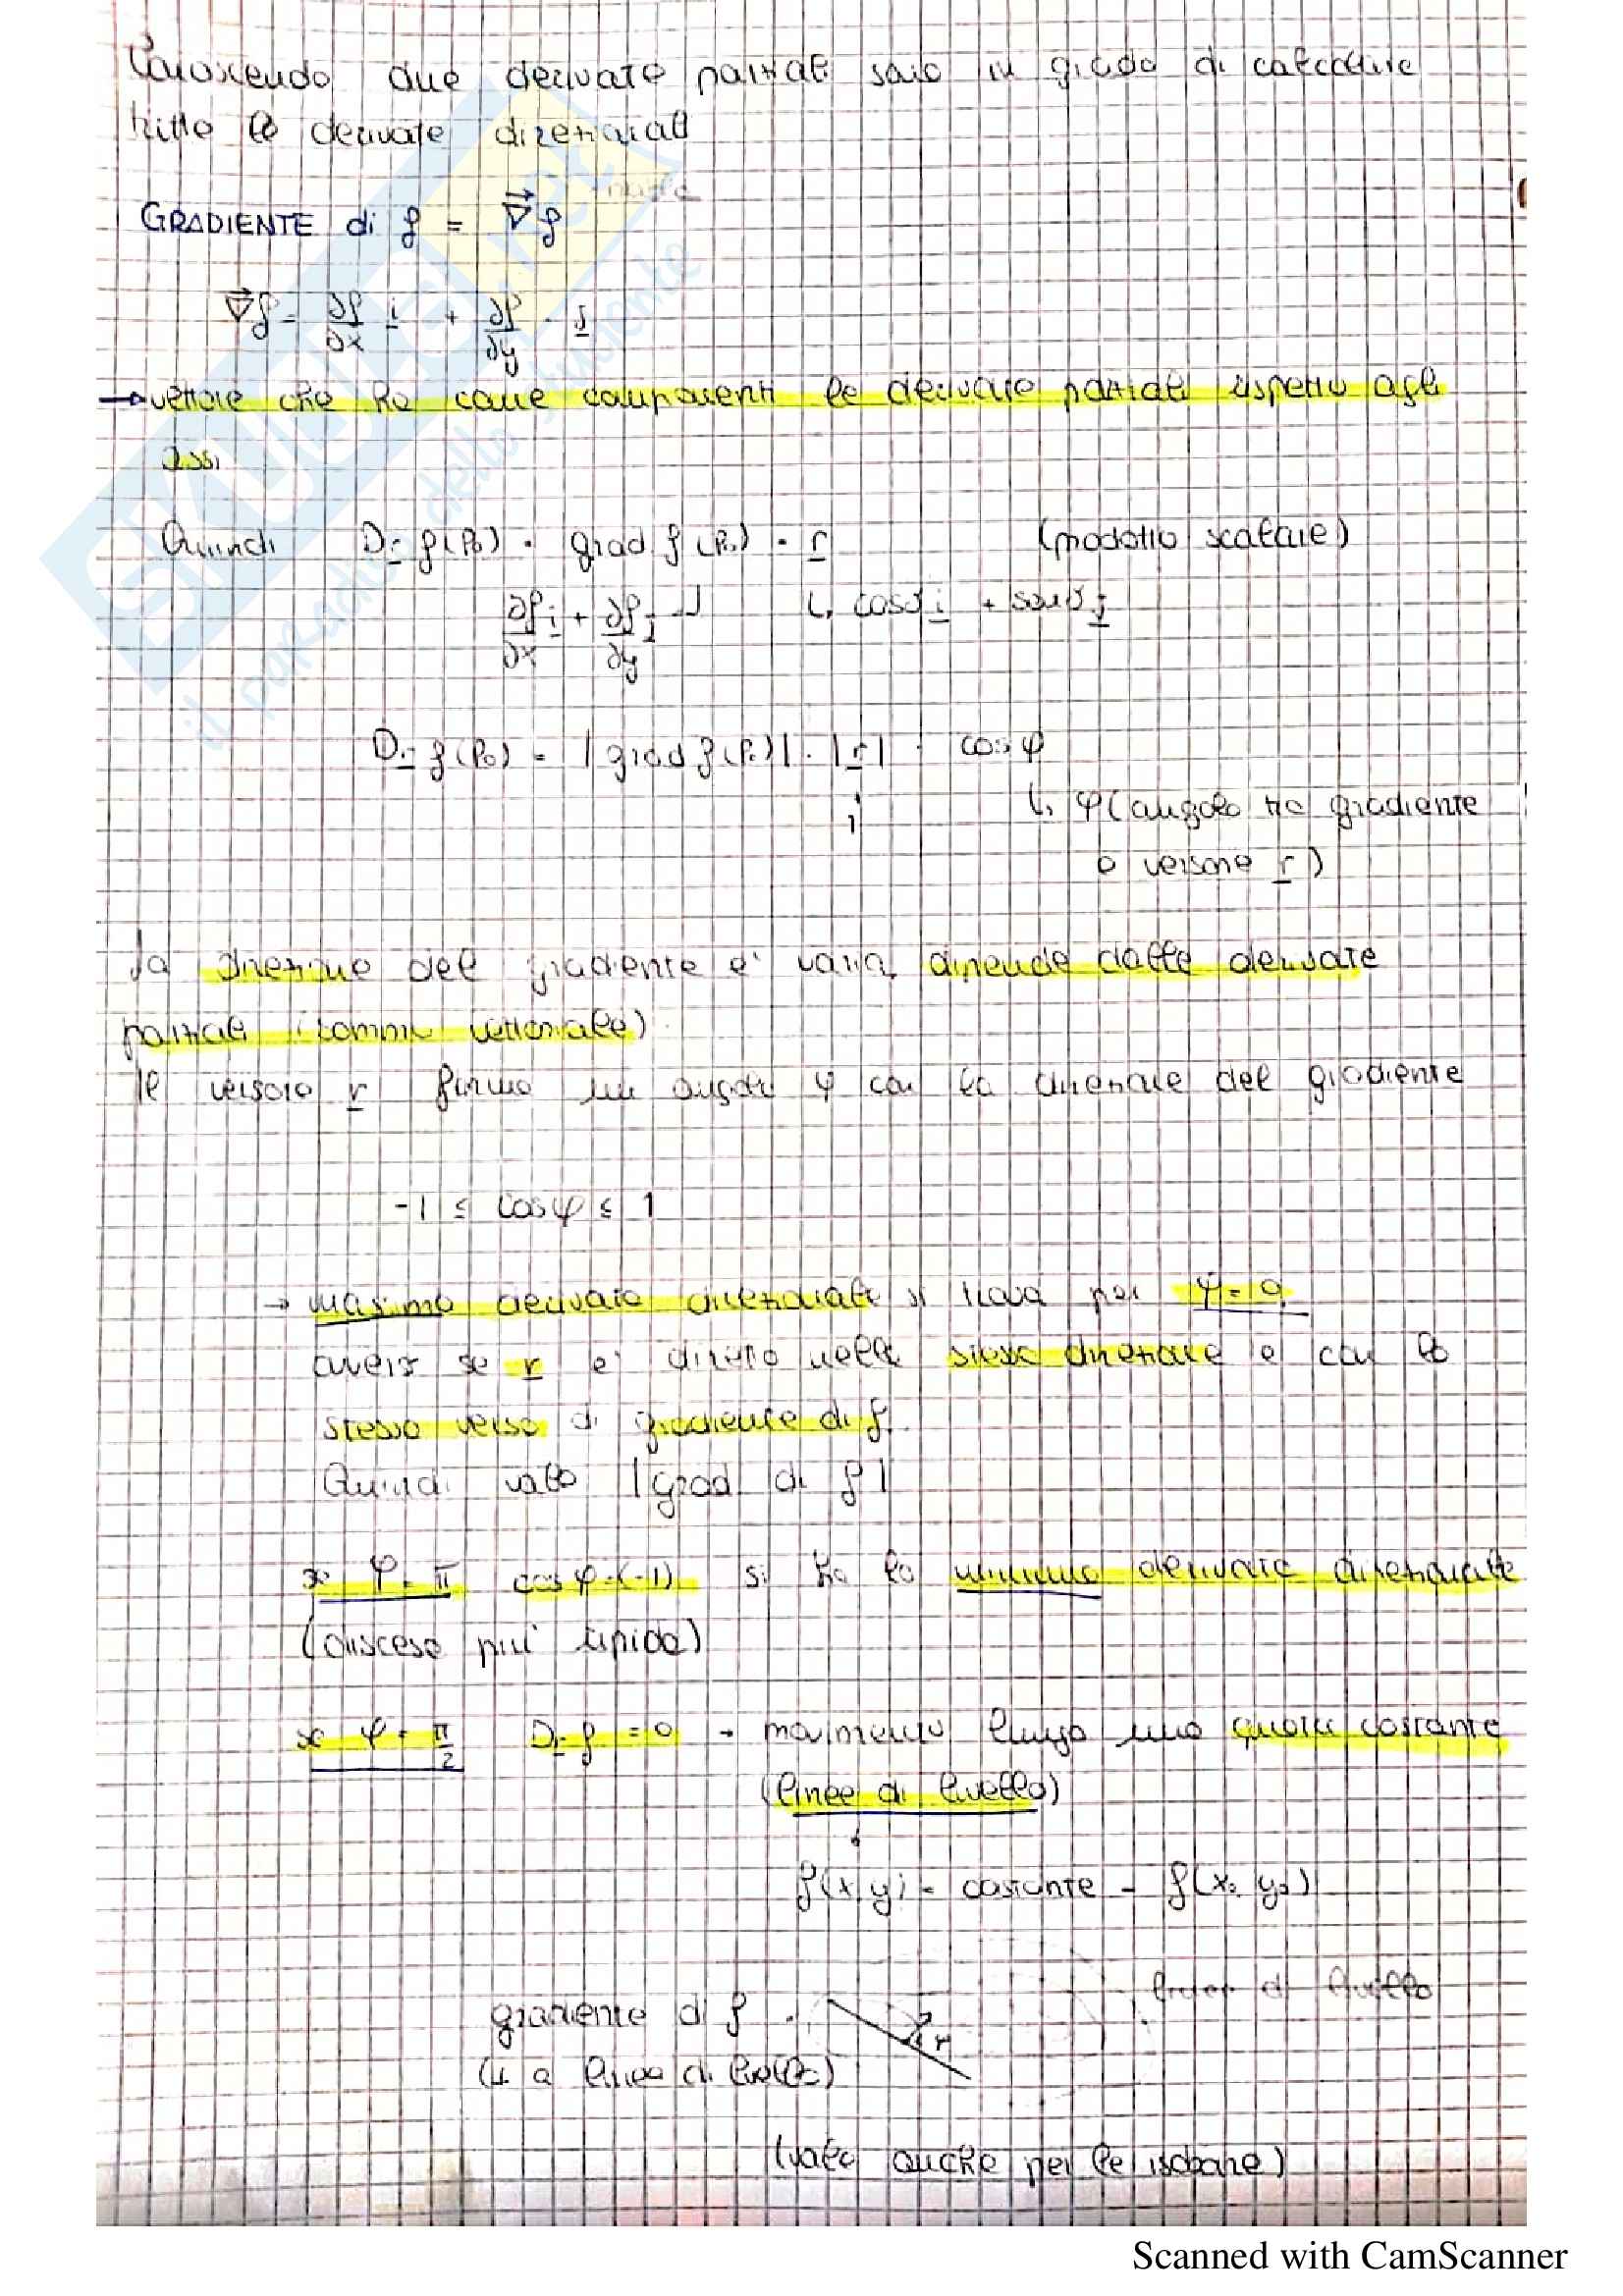 Conoscendo due derivate parziali sono in grado di calcolare
tutte le derivate direzionali
GRADIENTE di f = ∇⃗f
∇⃗f = ∂f/∂x i + ∂f/∂y · j
→ vettore che ha come componenti le derivate parziali rispetto agli
assi
Quindi Dr f(P0) = grad f(P0) · r (prodotto scalare)
∂f/∂x i + ∂f/∂y j ↲ ↳ cosϑ i + senϑ j
Dr f(P0) = |grad f(P0)| · |r| · cos φ
1 ↳ φ (angolo tra gradiente
e versore r)
La direzione del gradiente e' varia, dipende dalle derivate
parziali (somma vettoriale)
Il versore r forma un angolo φ con la direzione del gradiente
-1 ≤ cos φ ≤ 1
→ massima derivata direzionale si trova per φ = 0
ovvero se r e' diretto nella stessa direzione e con lo
stesso verso di gradiente di f.
Quindi vale |grad di f|
se φ = π cos φ = (-1) si ha la minima derivata direzionale
(discesa più ripida)
se φ = π/2 Dr f = 0 → movimento lungo una quota costante
(linee di livello)
f(x y) = costante = f(x0 y0)
linea di livello
gradiente di f
(⊥ a linea di livello)
(vale anche per le isobare)
SKUOLA.net
il paradiso dello studente
Scanned with CamScanner